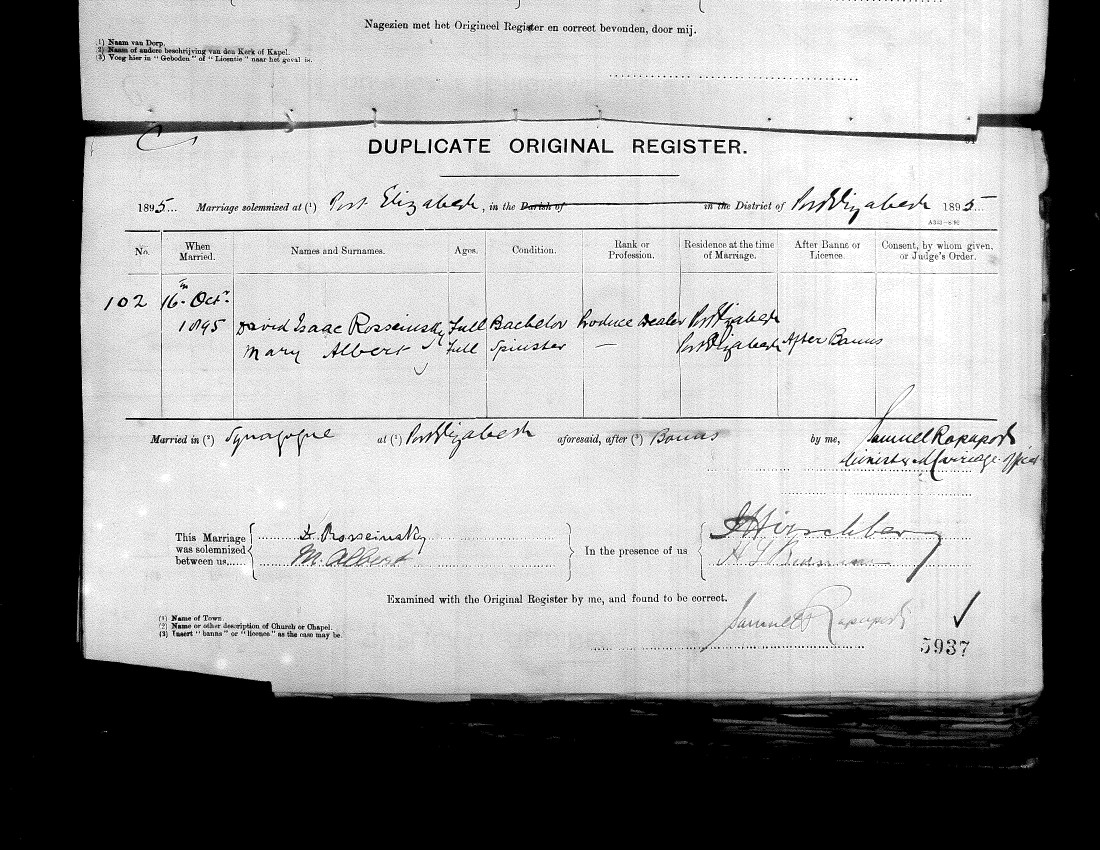 Nagezien met het Origineel Register en correct bevonden, door mij.
(1) Naam van Dorp.
(2) Naam of andere beschrijving van den Kerk of Kapel.
(3) Voeg hier in "Geboden" of "Licentie" naar het geval is.
DUPLICATE ORIGINAL REGISTER.
1895... Marriage solemnized at (1) Port Elizabeth, in the Parish of in the District of Port Elizabeth 1895...
No. When Married. Names and Surnames. Ages. Condition. Rank or Profession. Residence at the time of Marriage. After Banns or Licence. Consent, by whom given, or Judge's Order.
102 16th Octr.
1895 David Isaac Rosseinsky Full Bachelor Produce Dealer Port Elizabeth
Mary Albert Full Spinster — Port Elizabeth After Banns
Married in (2) Synagogue at (1) Port Elizabeth aforesaid, after (3) Banns by me, Samuel Rapaport
Minister & Marriage Officer
This Marriage was solemnized between us......
D. Rosseinsky
M. Albert
In the presence of us
Hirschberg
Examined with the Original Register by me, and found to be correct.
(1) Name of Town.
(2) Name or other description of Church or Chapel.
(3) Insert "banns" or "licence" as the case may be.
Samuel Rapaport
5937